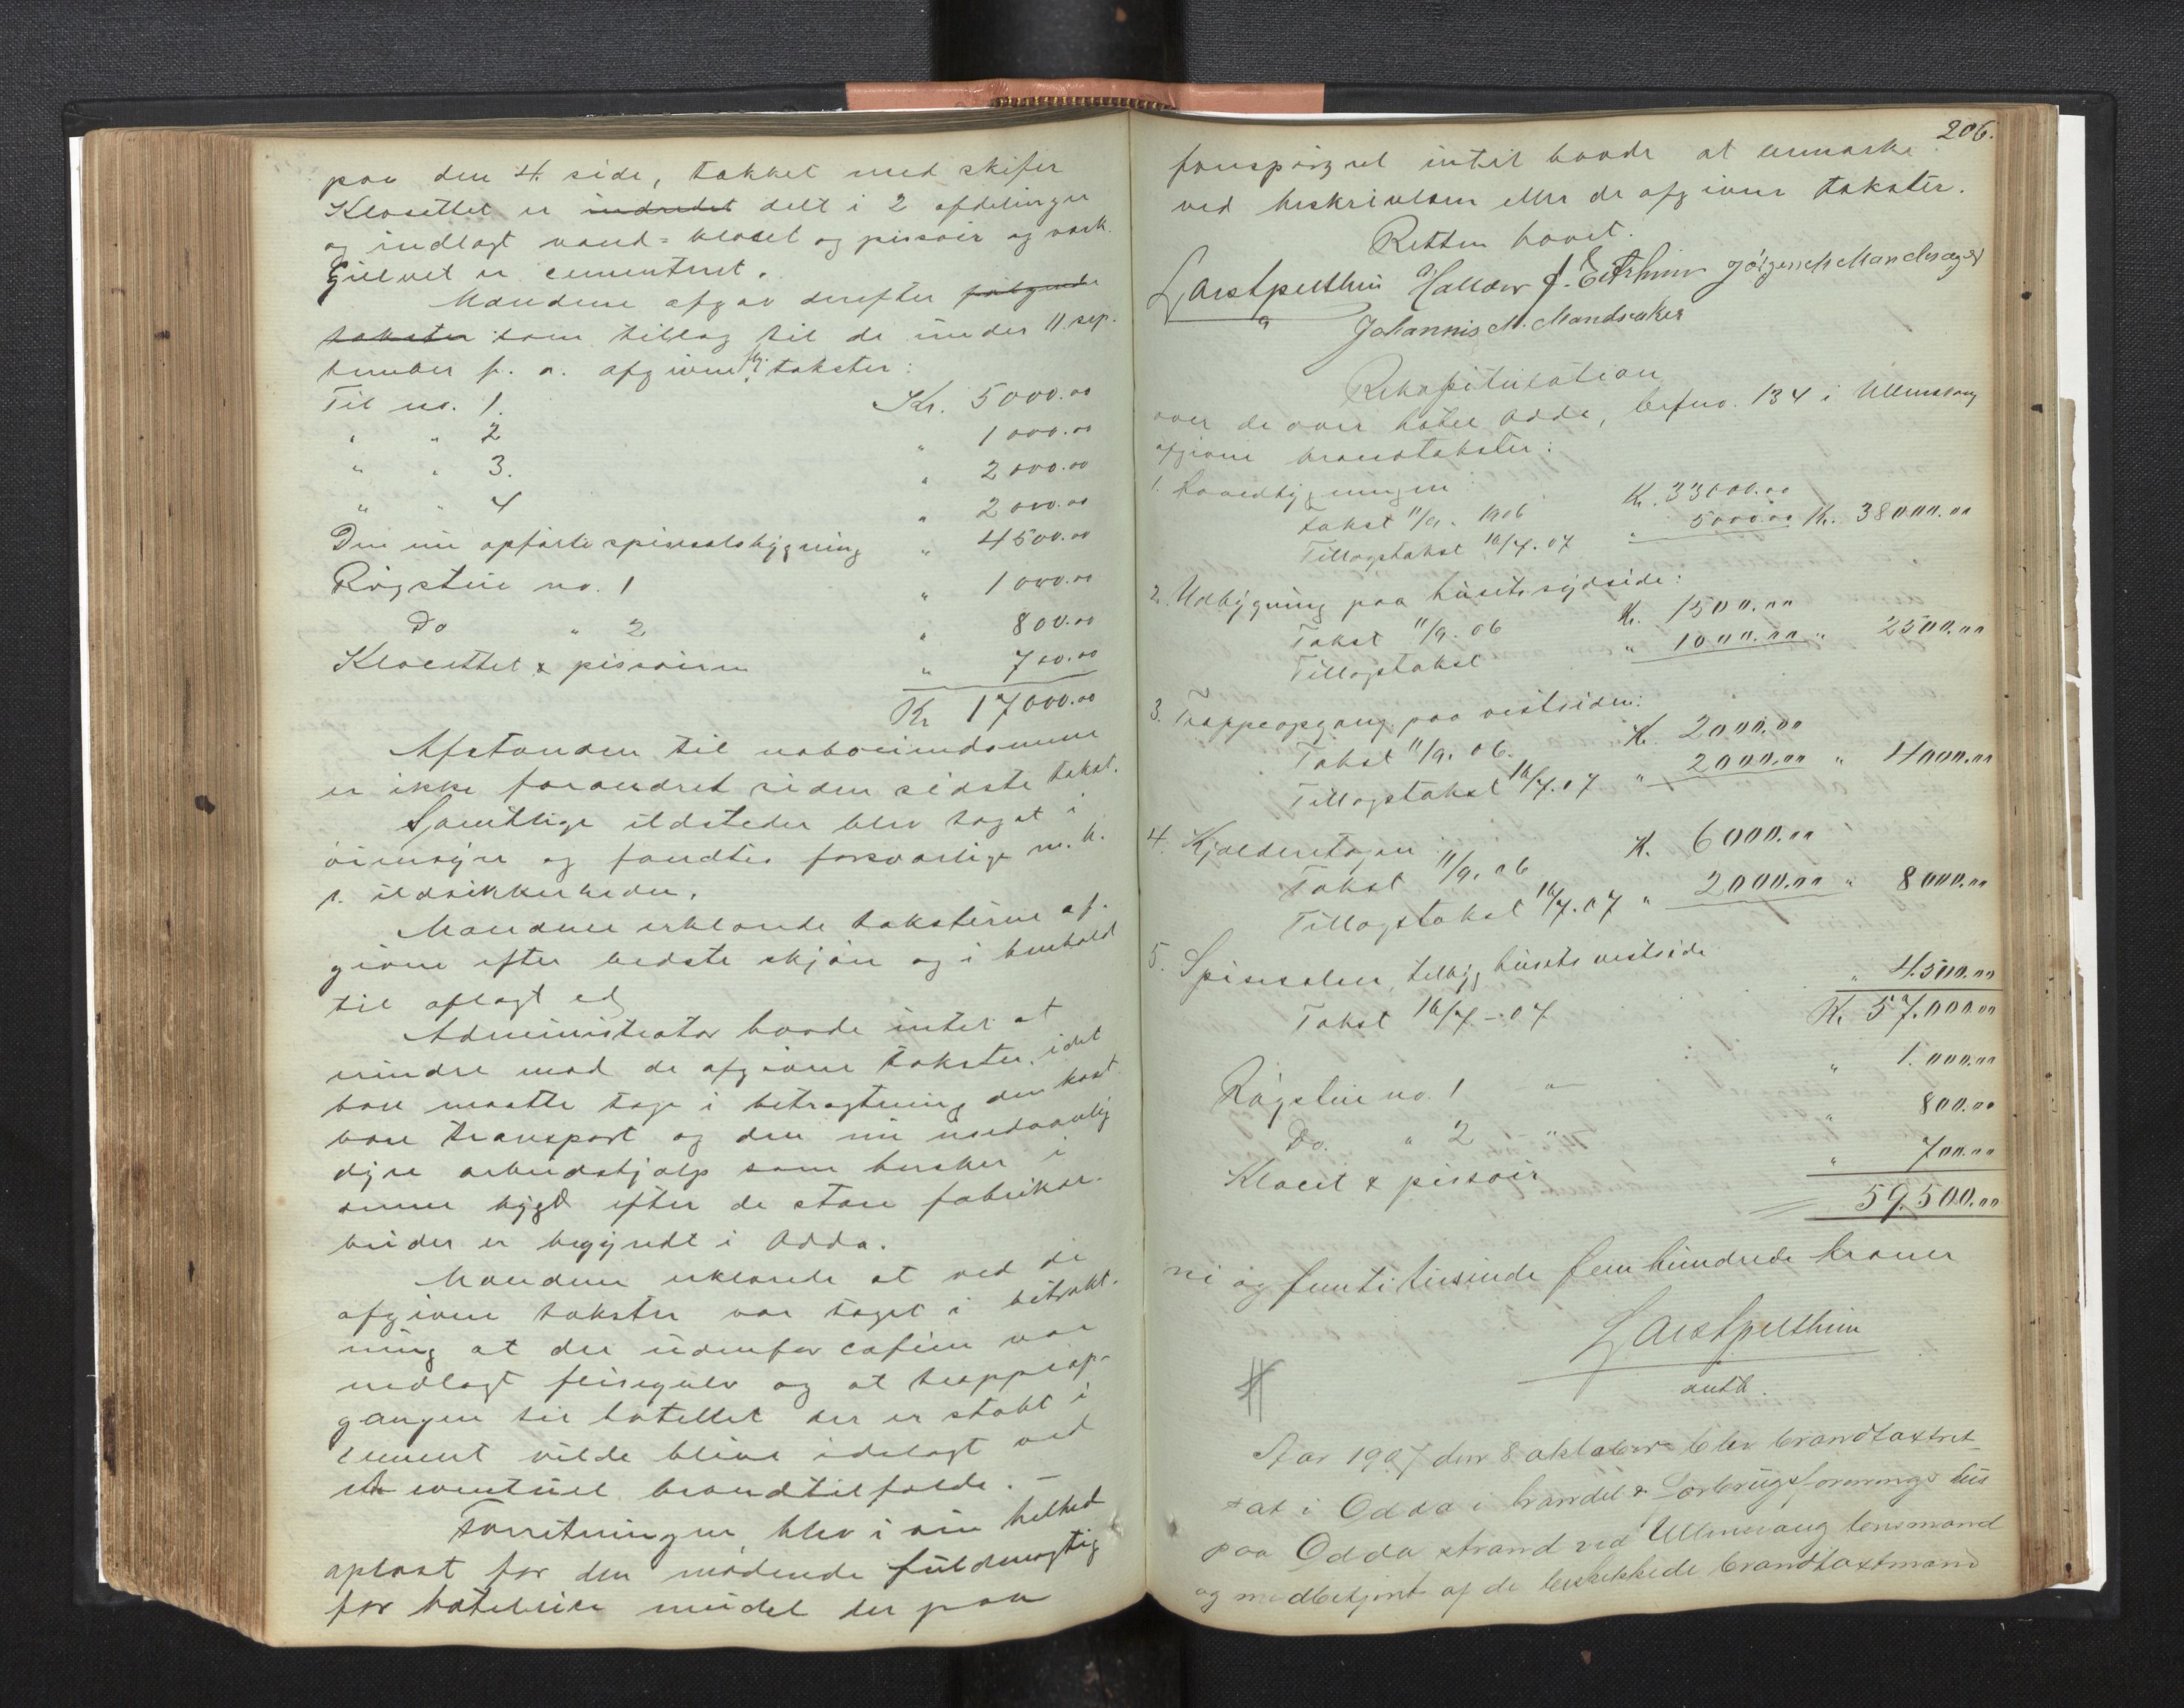 paa den 4. side, takket med skifer
Klosettet er indredet delt i 2 afdelinger
og indlagt vand=kloset og pissoir og vask.
Gulvet er cementeret.
Mændene afgav derefter følgende
takster som tillæg til de under 11. sep-
tember f. a. afgivne takster:
Til no. 1. Kr. 5000.00
" " 2 " 1000.00
" " 3. " 2000.00
" " 4 " 2000.00
Den nu opførte spisesalsbygning " 4500.00
Røgstue no. 1 " 1000.00
Do " 2 " 800.00
Klosettet & pissoiren " 700.00
Kr 17000.00
Afstanden til naboeiendommene
er ikke forandret siden sidste takst.
Samtlige ildsteder blev taget i
øiensyn og fandtes forsvarlige m. h.
t. ildsikkerheden.
Mændene erklærede taksterne af-
givne efter bedste skjøn og i henhold
til aflagt ed
Administrator havde intet at
erindre mod de afgivne takster, idet
han maatte tage i betragtning den kost-
bare transport og den nu usedvanlig
dyre arbeidshjælp som hersker i
denne bygd efter de store fabrikar-
beider er begyndt i Odda.
Mændene erklærede at ved de
afgivne takster var taget i betrakt-
ning at der udenfor cafeen var
nedlagt flisegulv og at trappeop-
gangen til hotellet der er støbt i
cement vilde blive ødelagt ved
en eventuel brandtilfælde. –
Forretningen blev i sin helhed
oplæst for den mødende fuldmægtig
for hoteleier mundel der paa
206.
forespørgsel intet havde at bemærke
ved beskrivelsen eller de afgivne takster.
Retten hævet.
Lars Apelthun Halldor J. Eitrheim Jørgen M Mandsager
Johannis M. Mandsaker
Rekapitulation
over de over hotel Odda, brfno. 134 i Ullensvang
afgivne brandtakster:
1. Hovedbygningen:
Takst 11/9. 1906 Kr. 33000.00
Tillægstakst 16/7. 07 " 5000.00 Kr. 38000.00
2. Udbygning paa husets sydside:
Takst 11/9. 06 Kr. 1500.00
Tillægstakst " 1000.00 " 2500.00
3. Trappeopgang paa vestsiden:
Takst 11/9. 06. Kr. 2000.00
Tillægstakst 16/7. 07 " 2000.00 " 4000.00
4. Kjælderetagen:
Takst 11/9. 06 K. 6000.00
Tillægstakst 16/7. 07 " 2000.00 " 8000.00
5. Spisesalen, tilbyg husets vestside
Takst 16/7 - 07 " 4500.00
Kr. 57.000.00
Røgstue no. 1 " " 1.000.00
Do. " 2 " " 800.00
Klocet & pissoir " 700.00
59.500.00
ni og femti tusinde fem hundrede kroner
Lars Apelthun
autb.
Aar 1907 den 8 oktober blev brandtaxtret
sat i Odda i handel & Forbrugsforenings hus
paa Odda strand ved Ullensvang lensmand
og medbetjent af de beskikkede brandtaxtmænd